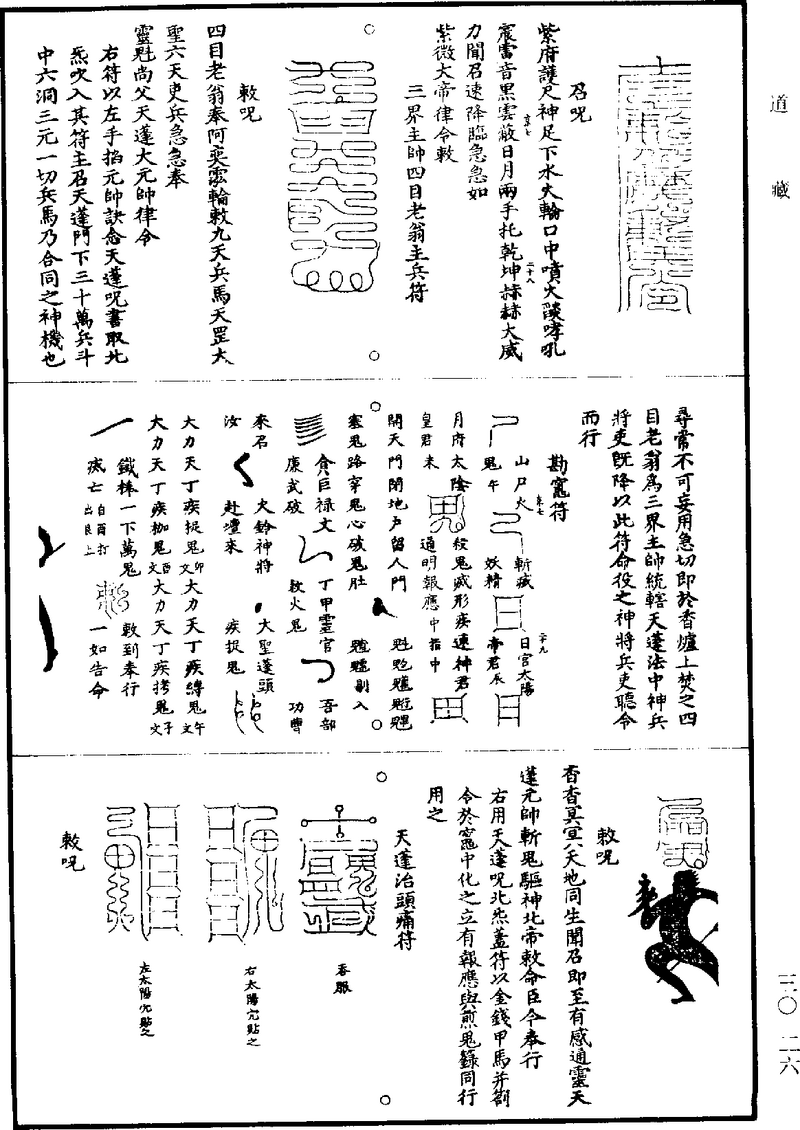 道藏
召呪
紫府護尺神足下水火輪口中噴火燄哮吼
震雷音黑雲蔽日月兩手托乾坤赫赫大威
力聞召速降臨急急如
紫微大帝律令敕
三界主帥四目老翁主兵符
敕呪
四目老翁奉阿奭霛輪敕九天兵馬天罡大
聖六天吏兵急急奉
靈魁尚父天蓬大元帥律令
右符以左手掐元帥訣念天蓬呪書取北
炁吹入其符主召天蓬門下三十萬兵斗
中六洞三元一切兵馬乃合同之神機也
尋常不可妄用急切即於香爐上焚之四
目老翁爲三界主帥統轄天蓬法中神兵
將吏旣降以此符命役之神將兵吏聽令
而行
勘竈符
山尸火
斬滅
日宮太陽
鬼午
妖精
帝君辰
月府太陰
殺鬼滅形疾速神君
皇君未
通明報應中指中
開天門閉地戶留人門
塞鬼路穿鬼心破鬼肚
剔入
貪巨祿文
丁甲靈官
吾部
廉武破
歘火鬼
功曹
來召
火鈴神將
大聖蓬頭
汝
赴壇來
疾捉鬼
大力天丁疾捉鬼文卯
大力天丁疾縛鬼文午
大力天丁疾枷鬼文酉
大力天丁疾拷鬼文子
鐵棒一下萬鬼
敕到奉行
滅亡
自酉打出艮上
一如告命
敕呪
杳杳冥冥天地同生聞召即至有感通靈天
蓬元帥斬鬼驅神北帝敕命臣今奉行
右用天蓬呪北炁蓋符以金錢甲馬并劄
令於竈中化之立有報應與煎鬼籙同行
用之
天蓬治頭痛符
吞服
右太陽穴貼之
左太陽穴貼之
敕呪
三〇 二六